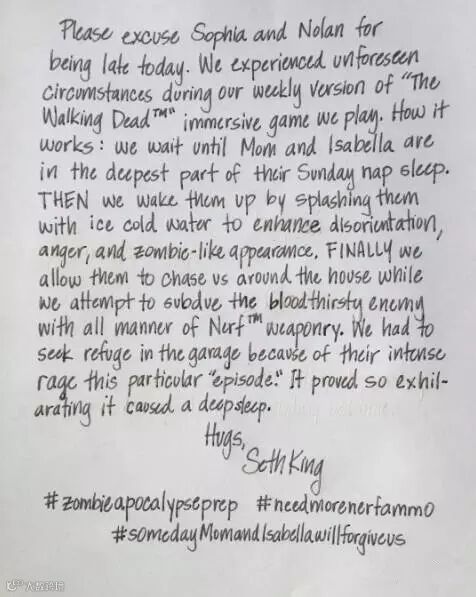 Please excuse Sophia and Nolan for
being late today. We experienced unforeseen
circumstances during our weekly version of "The
Walking Dead™" immersive game we play. How it
works: we wait until Mom and Isabella are
in the deepest part of their Sunday nap sleep.
THEN we wake them up by splashing them
with ice cold water to enhance disorientation,
anger, and zombie-like appearance. FINALLY we
allow them to chase us around the house while
we attempt to subdue the bloodthirsty enemy
with all manner of Nerf™ weaponry. We had to
seek refuge in the garage because of their intense
rage this particular "episode." It proved so exhil-
arating it caused a deep sleep.
Hugs,
Seth King
#zombieapocalypseprep #needmorenerfammo
#somedayMomandIsabellawillforgiveus